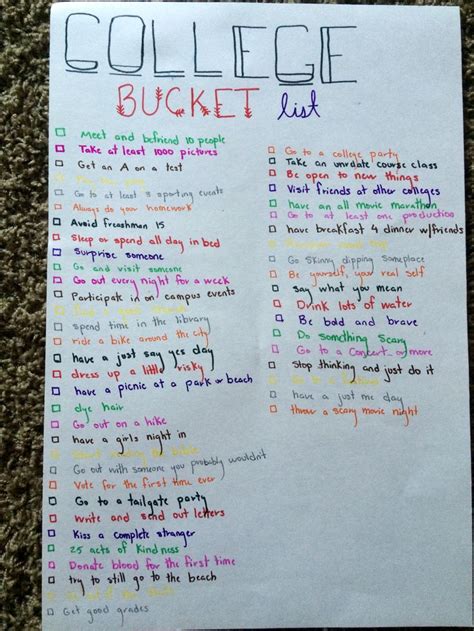 COLLEGE
BUCKET list
Meet and befriend 10 people
Take at least 1000 pictures
Get an A on a test
Go to at least 3 sporting events
Always do your homework
Avoid freshman 15
Sleep or spend all day in bed
Surprise someone
Go and visit someone
Go out every night for a week
Participate in on campus events
spend time in the library
ride a bike around the city
have a just say yes day
dress up a little risky
have a picnic at a park or beach
dye hair
Go out on a hike
have a girls night in
Go out with someone you probably wouldn't
Vote for the first time ever
Go to a tailgate party
Write and send out letters
Kiss a complete stranger
25 acts of kindness
Donate blood for the first time
try to still go to the beach
Get good grades
Go to a college party
Take an course class
Be open to new things
Visit friends at other colleges
have an all movie marathon
Go to at least one production
have breakfast 4 dinner w/friends
Go skinny dipping someplace
Be yourself, your real self
Say what you mean
Drink lots of water
Be bold and brave
Do something scary
Go to a concert or more
Stop thinking and just do it
have a just me day
throw a scary movie night